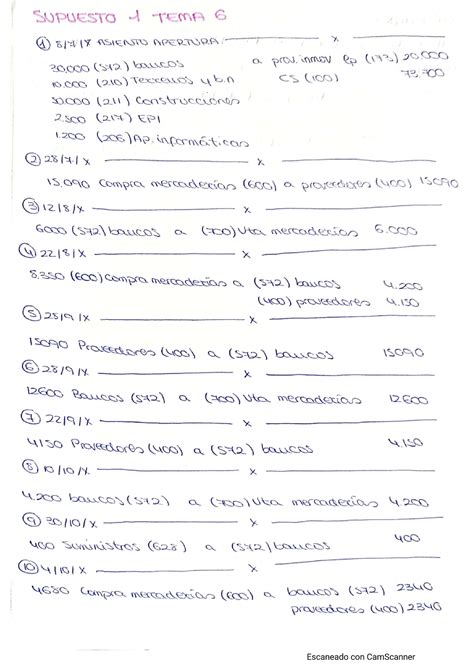 SUPUESTO 1 TEMA 6
① 8/7/X ASIENTO APERTURA x
30.000 (572) bancos a prov.inmov lp (173) 20.000
10.000 (210) Terrenos y b.n CS (100) 73.700
50.000 (211) Construcciones
2.500 (217) EPI
1.200 (206) Ap. informáticas
② 28/7/X x
15.090 Compra mercaderías (600) a proveedores (400) 15090
③ 12/8/X x
6000 (572) bancos a (700) Vta mercaderías 6.000
④ 22/8/X x
8.350 (600) compra mercaderías a (572) bancos 4.200
(400) proveedores 4.150
⑤ 28/9/X x
15090 Proveedores (400) a (572) bancos 15090
⑥ 28/9/X x
12600 Bancos (572) a (700) Vta mercaderías 12600
⑦ 22/9/X x
4150 Proveedores (400) a (572) bancos 4.150
⑧ 10/10/X x
4.200 bancos (572) a (700) Vta mercaderías 4.200
⑨ 30/10/X x
400 Suministros (628) a (572) bancos 400
⑩ 4/10/X x
4680 Compra mercaderías (600) a bancos (572) 2340
proveedores (400) 2340
Escaneado con CamScanner